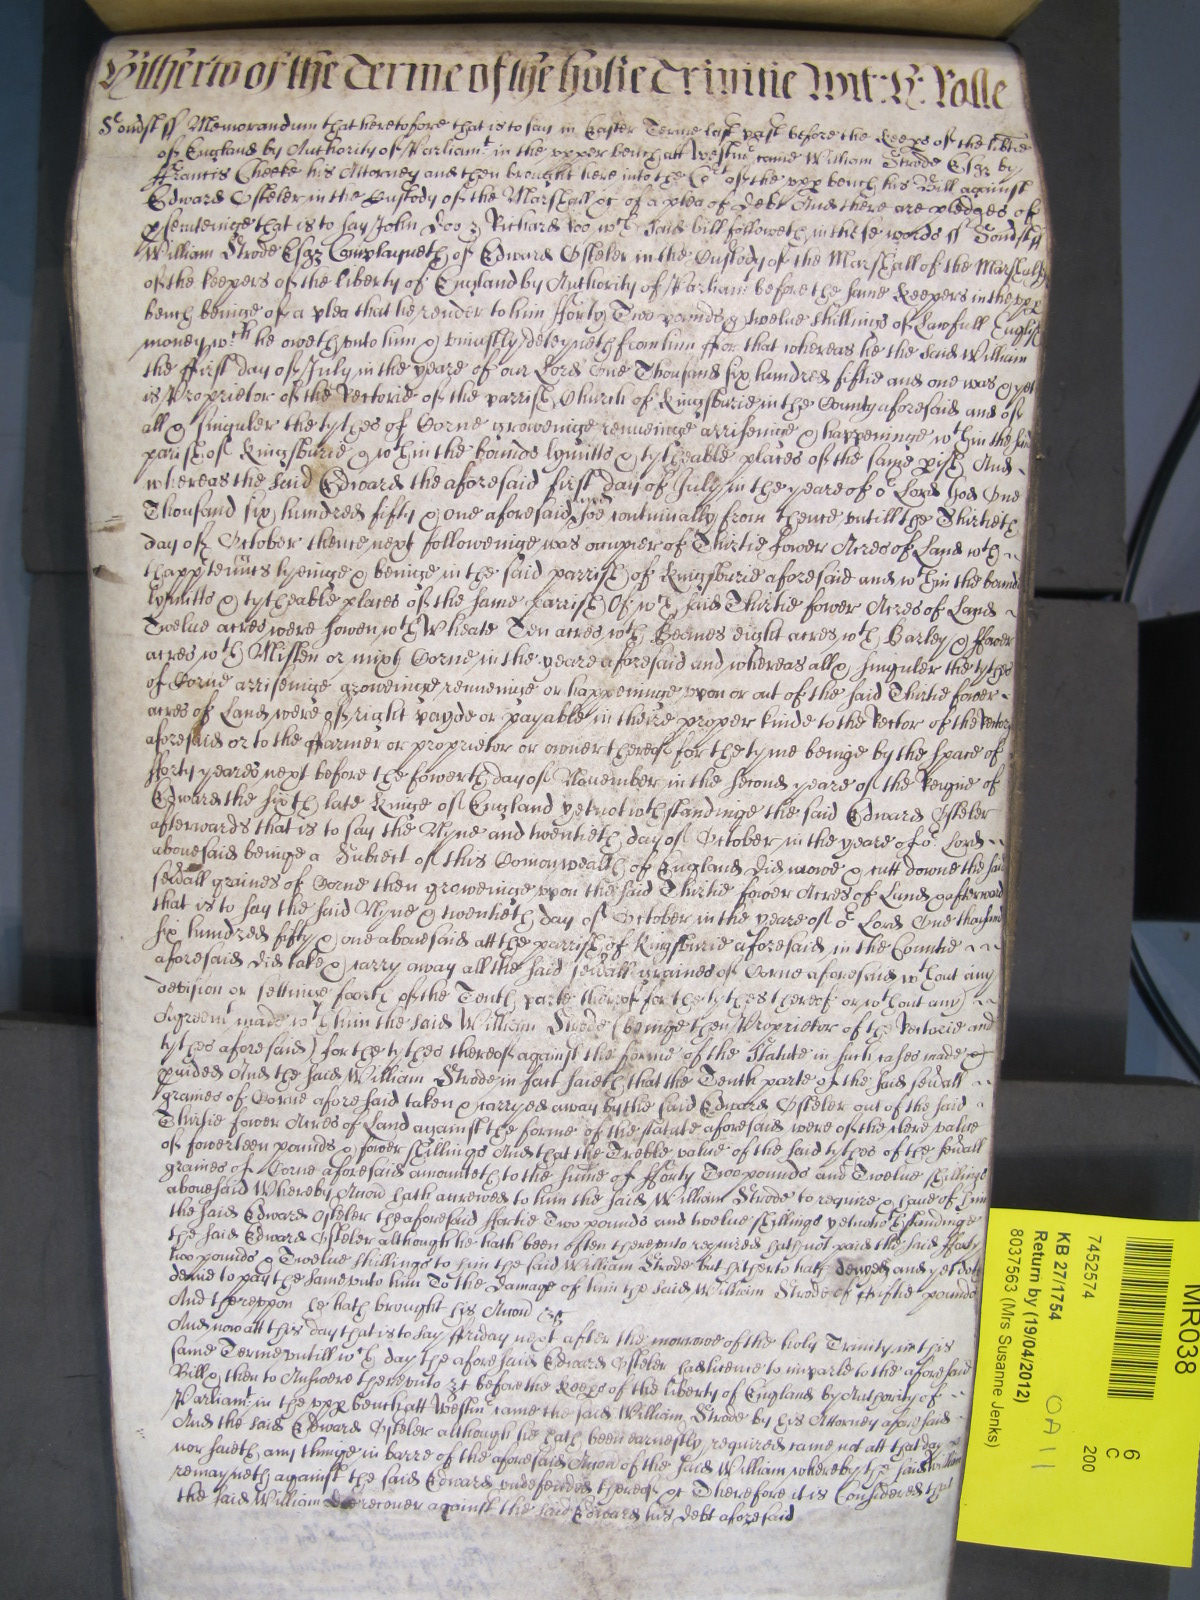 Hitherto of the Terme of the holie Trinitie Wit: R: Rolle
ss Memorandum that heretofore that is to say in Easter Terme last past before the Keeps of the libtie
of England by Authority of Parliamt in the upper bench att Westmr came William Strode Esqr by
ffrancis Cheeke his Attorney and then brought here into the Cort of the upp bench his Bill against
Edward Osteler in the Custody of the Marshall &c of a plea of Debt And there are pledges of
psecuteinge that is to say John Doo & Richard Roo wch said bill followeth in these words ss
William Strode Esqr Complayneth of Edward Osteler in the Custody of the Marshall of the Marshalsy
of the keepers of the liberty of England by Authority of Parliamt before the same Keepers in the upp
bench beinge of a plea that he render to him fforty Two pounds & twelve shillings of Lawfull English
money wch he oweth unto him & uniustly deteyneth from him ffor that whereas he the said William
the ffirst day of July in the yeare of our Lord One Thousand six hundred fiftie and one was & yet
is Proprietor of the Rectorie of the parrish Church of Kingsburie in the County aforesaid and of
all & singuler the tythes of Corne groweinge reneweinge ariseinge & happeninge wthin the said
parish of Kingsburie & wthin the bounds lymitts & tytheable places of the same pish And
whereas the said Edward the aforesaid first day of July in the yeare of or Lord God One
Thousand six hundred fifty & one aforesaid and continually from thence untill the Thirtieth
day of October thence next followeinge was occupier of Thirtie fower Acres of Land wth
thapptenncs lyeinge & beinge in the said parrish of Kingsburie aforesaid and wthin the bounds
lymitts & tytheable places of the same parrish Of wch said Thirtie fower Acres of Land
Twelve acres were sowen wth Wheate Ten acres wth Beanes eight acres wth Barley & ffower
acres wth Misslen or mixt Corne in the yeare aforesaid and whereas all & singuler the tythes
of Corne arriseinge groweinge reneweinge or happeninge upon or out of the said Thirtie fower
acres of Land were of right payde or payable in theire proper kinde to the Rector of the Rectory
aforesaid or to the ffarmer or proprietor or owner thereof for the tyme beinge by the space of
fforty yeares next before the fowerth day of November in the second yeare of the Reigne of
Edward the sixth late Kinge of England yet notwthstandinge the said Edward Osteler
afterwards that is to say the Nyne and twentieth day of October in the yeare of or Lord
abovesaid beinge a Subiect of this Comonwealth of England did mowe & cutt downe the said
sevall graines of Corne then groweinge upon the said Thirtie fower Acres of Land & afterward
that is to say the said Nyne & twentieth day of October in the yeare of or Lord One thousand
six hundred fifty & one abovesaid att the parrish of Kingsburie aforesaid in the Countie
aforesaid did take & carry away all the said sevall graines of Corne aforesaid wthout any
devision or settinge foorth of the Tenth parte thereof for the tythes thereof or wthout any
Agreemt made wth him the said William Strode (beinge then Proprietor of the Rectorie and
tythes aforesaid) for the tythes thereof against the forme of the Statute in such cases made &
pvided And the said William Strode in fact saieth that the Tenth parte of the said sevall
graines of Corne aforesaid taken & carryed away by the said Edward Osteler out of the said
Thirtie fower Acres of Land against the forme of the statute aforesaid were of the clere value
of fowerteen pounds & fower shillings And that the Treble value of the said tythes of the sevall
graines of Corne aforesaid amounteth to the sume of fforty Two pounds and Twelve shillings
abovesaid Whereby Accon hath accrewed to him the said William Strode to require & have of him
the said Edward Osteler the aforesaid ffortie Two pounds and twelve shillings yet notwthstandinge
the said Edward Osteler although he hath been often thereunto required hath not paid the said fforty
two pounds & Twelve shillings to him the said William Strode but hitherto hath denyed and yet doth
denie to pay the same unto him To the damage of him the said William Strode of ffiftie pounds
And thereupon he hath brought his Accon &c
And now att this day that is to say ffriday next after the morrowe of the holy Trinity in this
same Terme untill wch day the aforesaid Edward Osteler had licence to imparle to the aforesaid
Bill & then to Answere thereunto &c before the Keeps of the liberty of England by Authority of
Parliamt in the upp bench att Westmr came the said William Strode by his Attorney aforesaid
And the said Edward Osteler although he hath been earnestly required came not att that day
nor saieth any thinge in barre of the aforesaid Accon of the said William whereby the said William
remayneth against the said Edward undefended thereof &c Therefore it is Considered that
the said William doe recover against the said Edward his debt aforesaid
MR038
6
C
200
7452574
KB 27/1754
Return by (19/04/2012)
8037563 (Mrs Susanne Jenks)